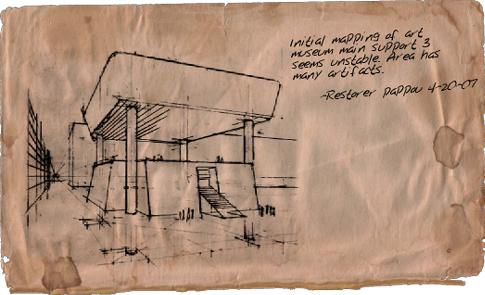 Initial mapping of art
museum main support 3
seems unstable. Area has
many artifacts.
-Restorer pappou 4-20-07